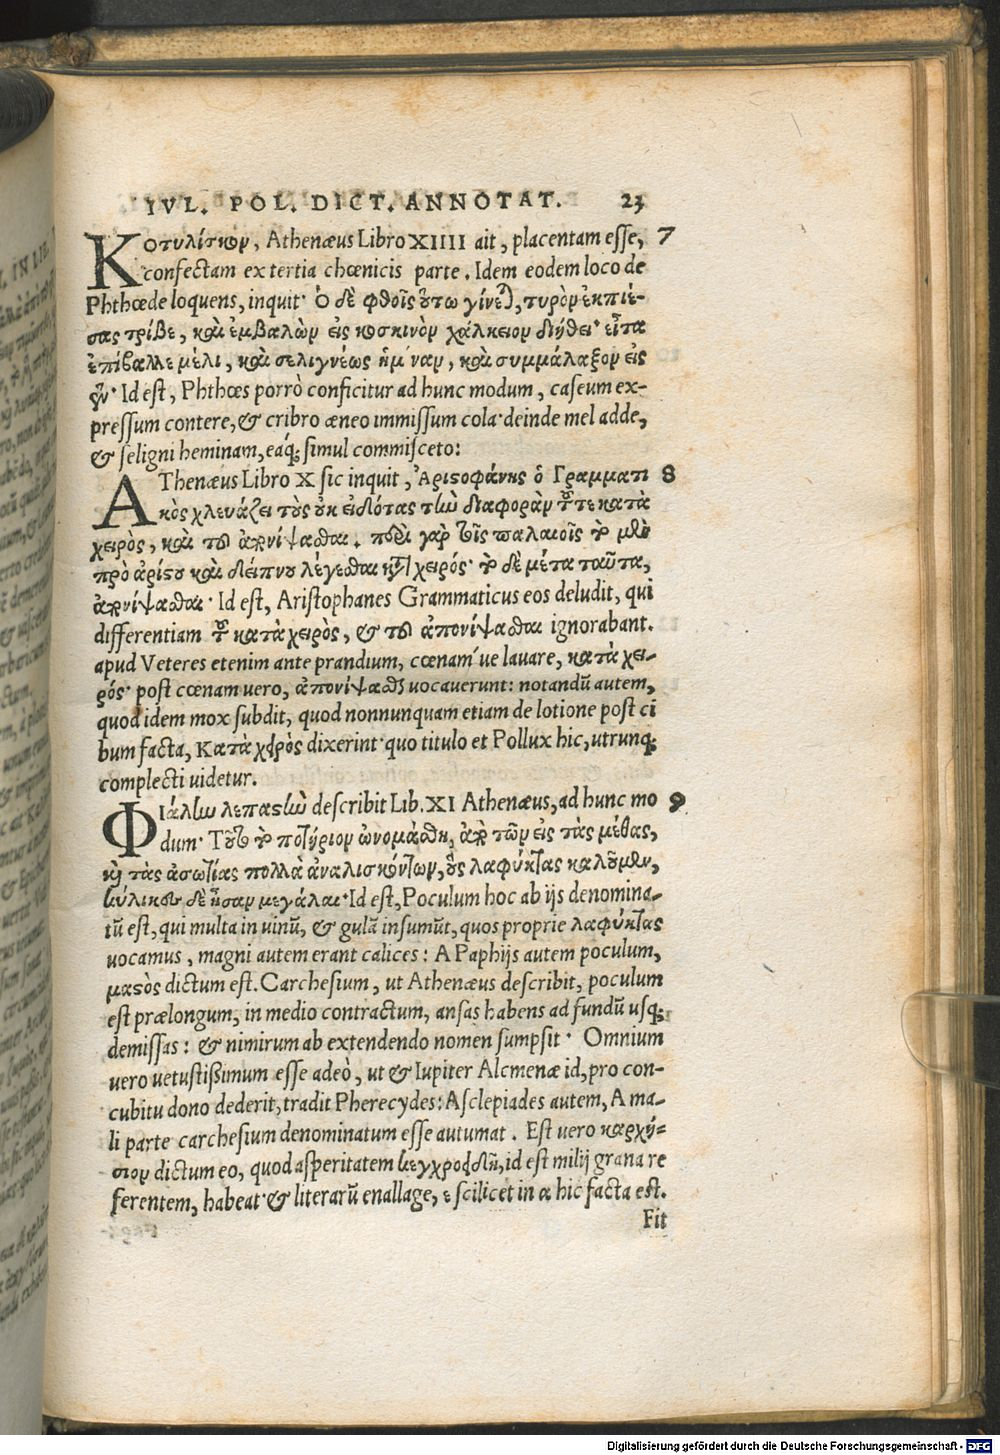 IVL. POL. DICT. ANNOTAT. 23
Κοτυλίσκον, Athenæus Libro XIIII ait, placentam esse, 7
confectam ex tertia chœnicis parte. Idem eodem loco de
Phthoe de loquens, inquit· Ὁ δὲ φθοῖς οὕτω γίνεται, τυρὸν ἐκπιέ-
σας τρίβε, καὶ ἐμβαλὼν εἰς κοσκινὸν χάλκειον διήθει· εἶτα
ἐπίβαλλε μέλι, καὶ σελιγνέως ἡμίναν, καὶ συμμάλαξον εἰς
ἓν· Id est, Phthoes porrò conficitur ad hunc modum, caseum ex-
pressum contere, & cribro æneo immissum cola· deinde mel adde,
& seligni heminam, eáq; simul commisceto:
AThenæus Libro X sic inquit, Ἀριστοφάνης ὁ Γραμματι 8
κὸς χλευάζει τοὺς οὐκ εἰδότας τὼ διαφορὰν τοῦ τε κατὰ
χειρὸς, καὶ του ἀπονίψασθαι. παρὰ γὰρ τοῖς παλαιοῖς τὸ μὲν
πρὸ ἀρίστου καὶ δείπνου λέγεσθαι κατὰ χειρός· τὸ δὲ μέτα ταῦτα,
ἀπονίψασθαι· Id est, Aristophanes Grammaticus eos deludit, qui
differentiam τοῦ κατὰ χειρὸς, & του ἀπονίψασθαι ignorabant.
apud Veteres etenim ante prandium, cœnam´ue lavare, κατὰ χει-
ρός· post cœnam vero, ἀπονίψασθαι vocaverunt: notandũ autem,
quod idem mox subdit, quod nonnunquam etiam de lotione post ci
bum facta, Κατὰ χειρὸς dixerint· quo titulo et Pollux hic, utrunq;
complecti videtur.
ΦΙάλην λεπαστὴν describit Lib. XI Athenæus, ad hunc mo 9
dum· Τοῦτο τὸ ποτήριον ὠνομάσθη, ἀπὸ τῶν εἰς τὰς μέθας,
καὶ τὰς ἀσωτίας πολλὰ ἀναλισκόντων, οὓς λαφύκτας καλοῦμεν,
κύλικες δὲ ἦσαν μεγάλαι· Id est, Poculum hoc ab ijs denomina-
tũ est, qui multa in uinũ, & gulã insumũt, quos proprie λαφύκτας
vocamus, magni autem erant calices: A Paphijs autem poculum,
μαστὸς dictum est. Carchesium, ut Athenæus describit, poculum
est prælongum, in medio contractum, ansas habens ad fundũ usq;
demissas: & nimirum ab extendendo nomen sumpsit· Omnium
vero vetustissimum esse adeò, ut & Iupiter Alcmenæ id, pro con-
cubitu dono dederit, tradit Pherecydes: Asclepiades autem, A ma-
li parte carchesium denominatum esse autumat. Est vero καρχή-
σιον dictum eo, quod asperitatem κεγχροειδῆ, id est milij grana re
ferentem, habeat· & literarũ enallage, ε scilicet in α hic facta est.
Fit
Digitalisierung gefördert durch die Deutsche Forschungsgemeinschaft - DFG